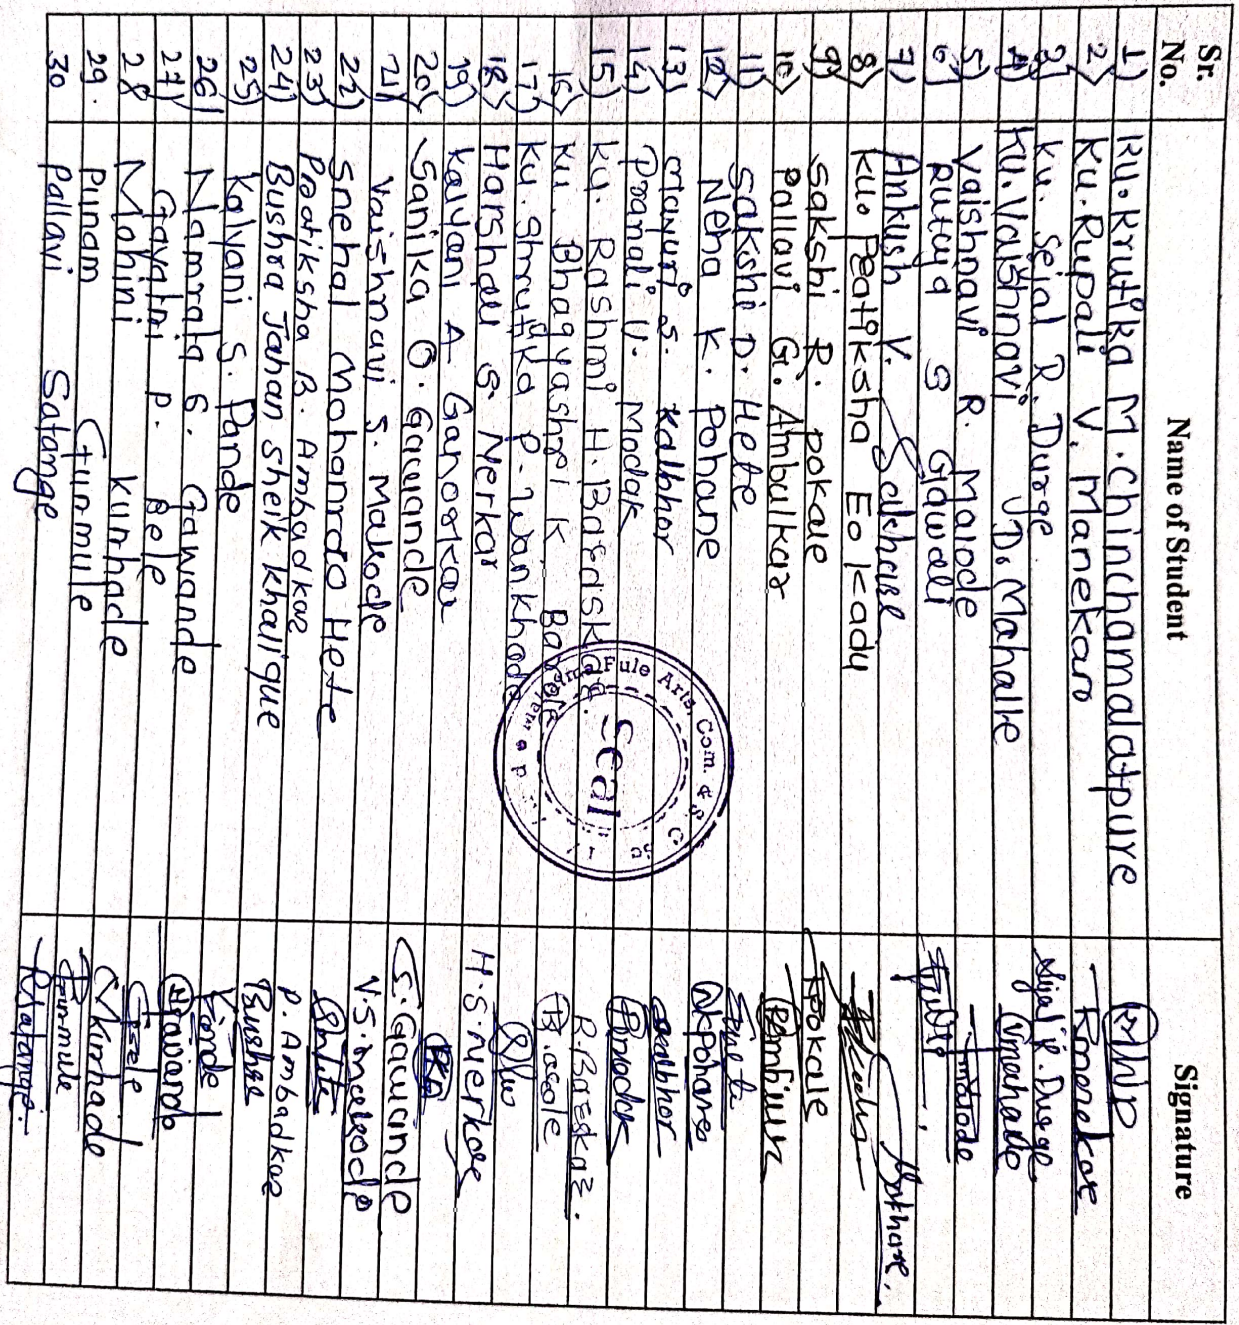 Sr. No. Name of Student Signature
1) Ku. Krutika M. Chinchamalatpure
2) Ku. Rupali V. Manekar Rmanekar
3) Ku. Sejal R. Durge Sejal R. Durge
4) Ku. Vaishnavi D. Mahalle Vmahalle
5) Vaishnavi R. Malode
6) Rutuja S Gawali
7) Ankush V. Sakhare
8) Ku. Pratiksha Eo Kadu
9) Sakshi R. Pokale Pokale
10) Pallavi G. Ambulkar
11) Sakshi D. Hete
12) Neha K. Pohane NKPohane
13) Mayuri S. Kalbhor
14) Pranali U. Modak Pmodak
15) Ku. Rashmi H. Baraskar. R. Baraskar.
16) Ku. Bhagyashri K. Basole B.asole
17) Ku. Shrutika P. Wankhade
18) Harshali S. Nerkar H.S. Nerkar
19) Kalyani A Ganorkar
20) Sanika O. Gawande S. Gawande
21) Vaishnavi S. Makode V.S. makode
22) Snehal Mohanrao Hete
23) Pratiksha B. Ambadkar P. Ambadkar
24) Bushra Jahan Sheik Khalique Bushra
25) Kalyani S. Pande
26) Namrata G. Gawande
27) Gayatri P. Bele
28 Mohini Kumhade Mkumhade
29. Punam Gummule Gummule
30 Pallavi Satange PSatange.
Fule Arts, Com. & S
Seal